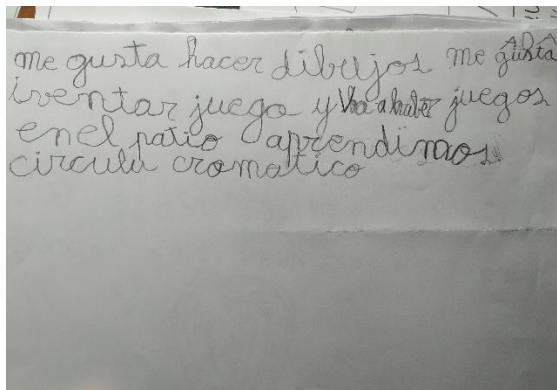 me gusta hacer dibujos me gusta
iventar juego y va a haber juegos
en el patio aprendimos
circulu cromatico